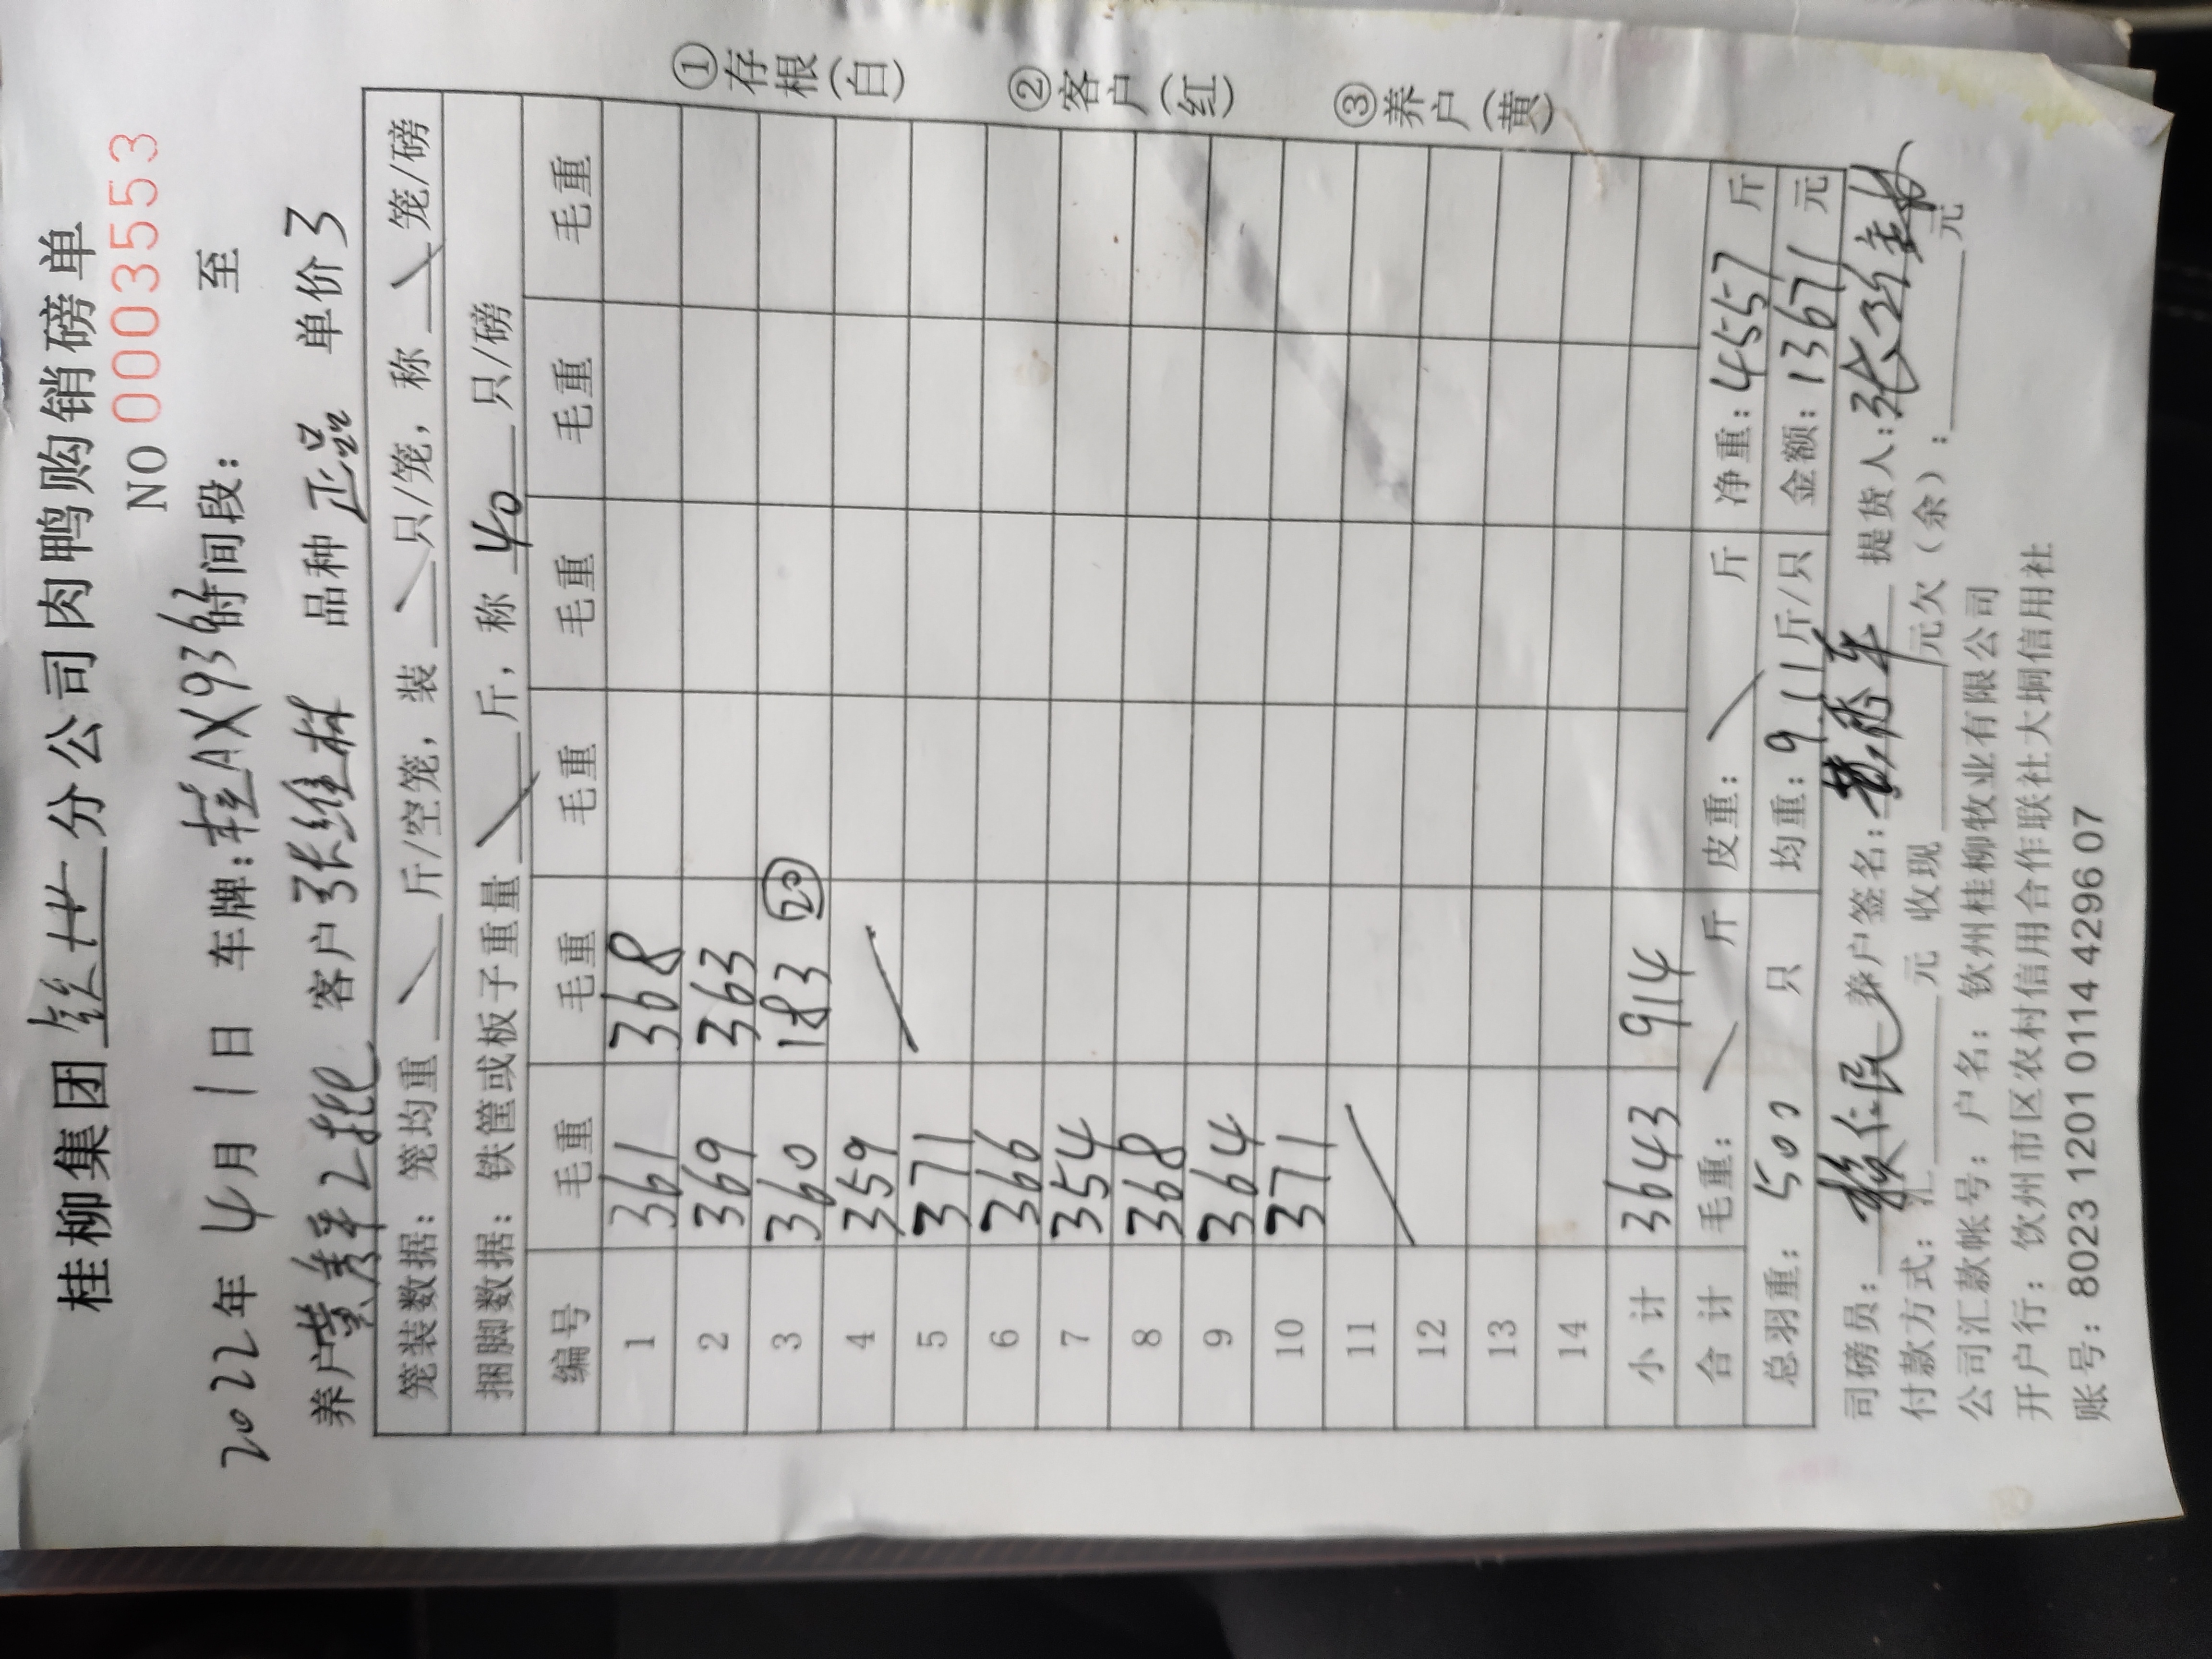 桂柳集团 分公司肉鸭购销磅单
NO 0003553
2022年 4月 1日 车牌:桂AX936 时间段: 至
养户 黄秀平2批 客户 张维林 品种 正品 单价 3
笼装数据: 笼均重 / 斤/空笼, 装 / 只/笼, 称 / 笼/磅
捆脚数据: 铁筐或板子重量 / 斤, 称 40 只/磅
编号 毛重 毛重 毛重 毛重 毛重 毛重
1 361 368
2 369 363
3 360 183 ⑳
4 359 /
5 371
6 366
7 354
8 368
9 364
10 371
11 /
12
13
14
小计 3643 914
合计 毛重: / 斤 皮重: / 斤 净重: 4557 斤
总羽重: 500 只 均重: 9.11 斤/只 金额: 13671 元
司磅员: 养户签名: 黄秀平 提货人: 张
付款方式: 汇 元 收现 元欠(余): 元
公司汇款帐号: 户名: 钦州桂柳牧业有限公司
开户行: 钦州市区农村信用合作联社大垌信用社
账号: 8023 1201 0114 4296 07
①存根(白)
②客户(红)
③养户(黄)